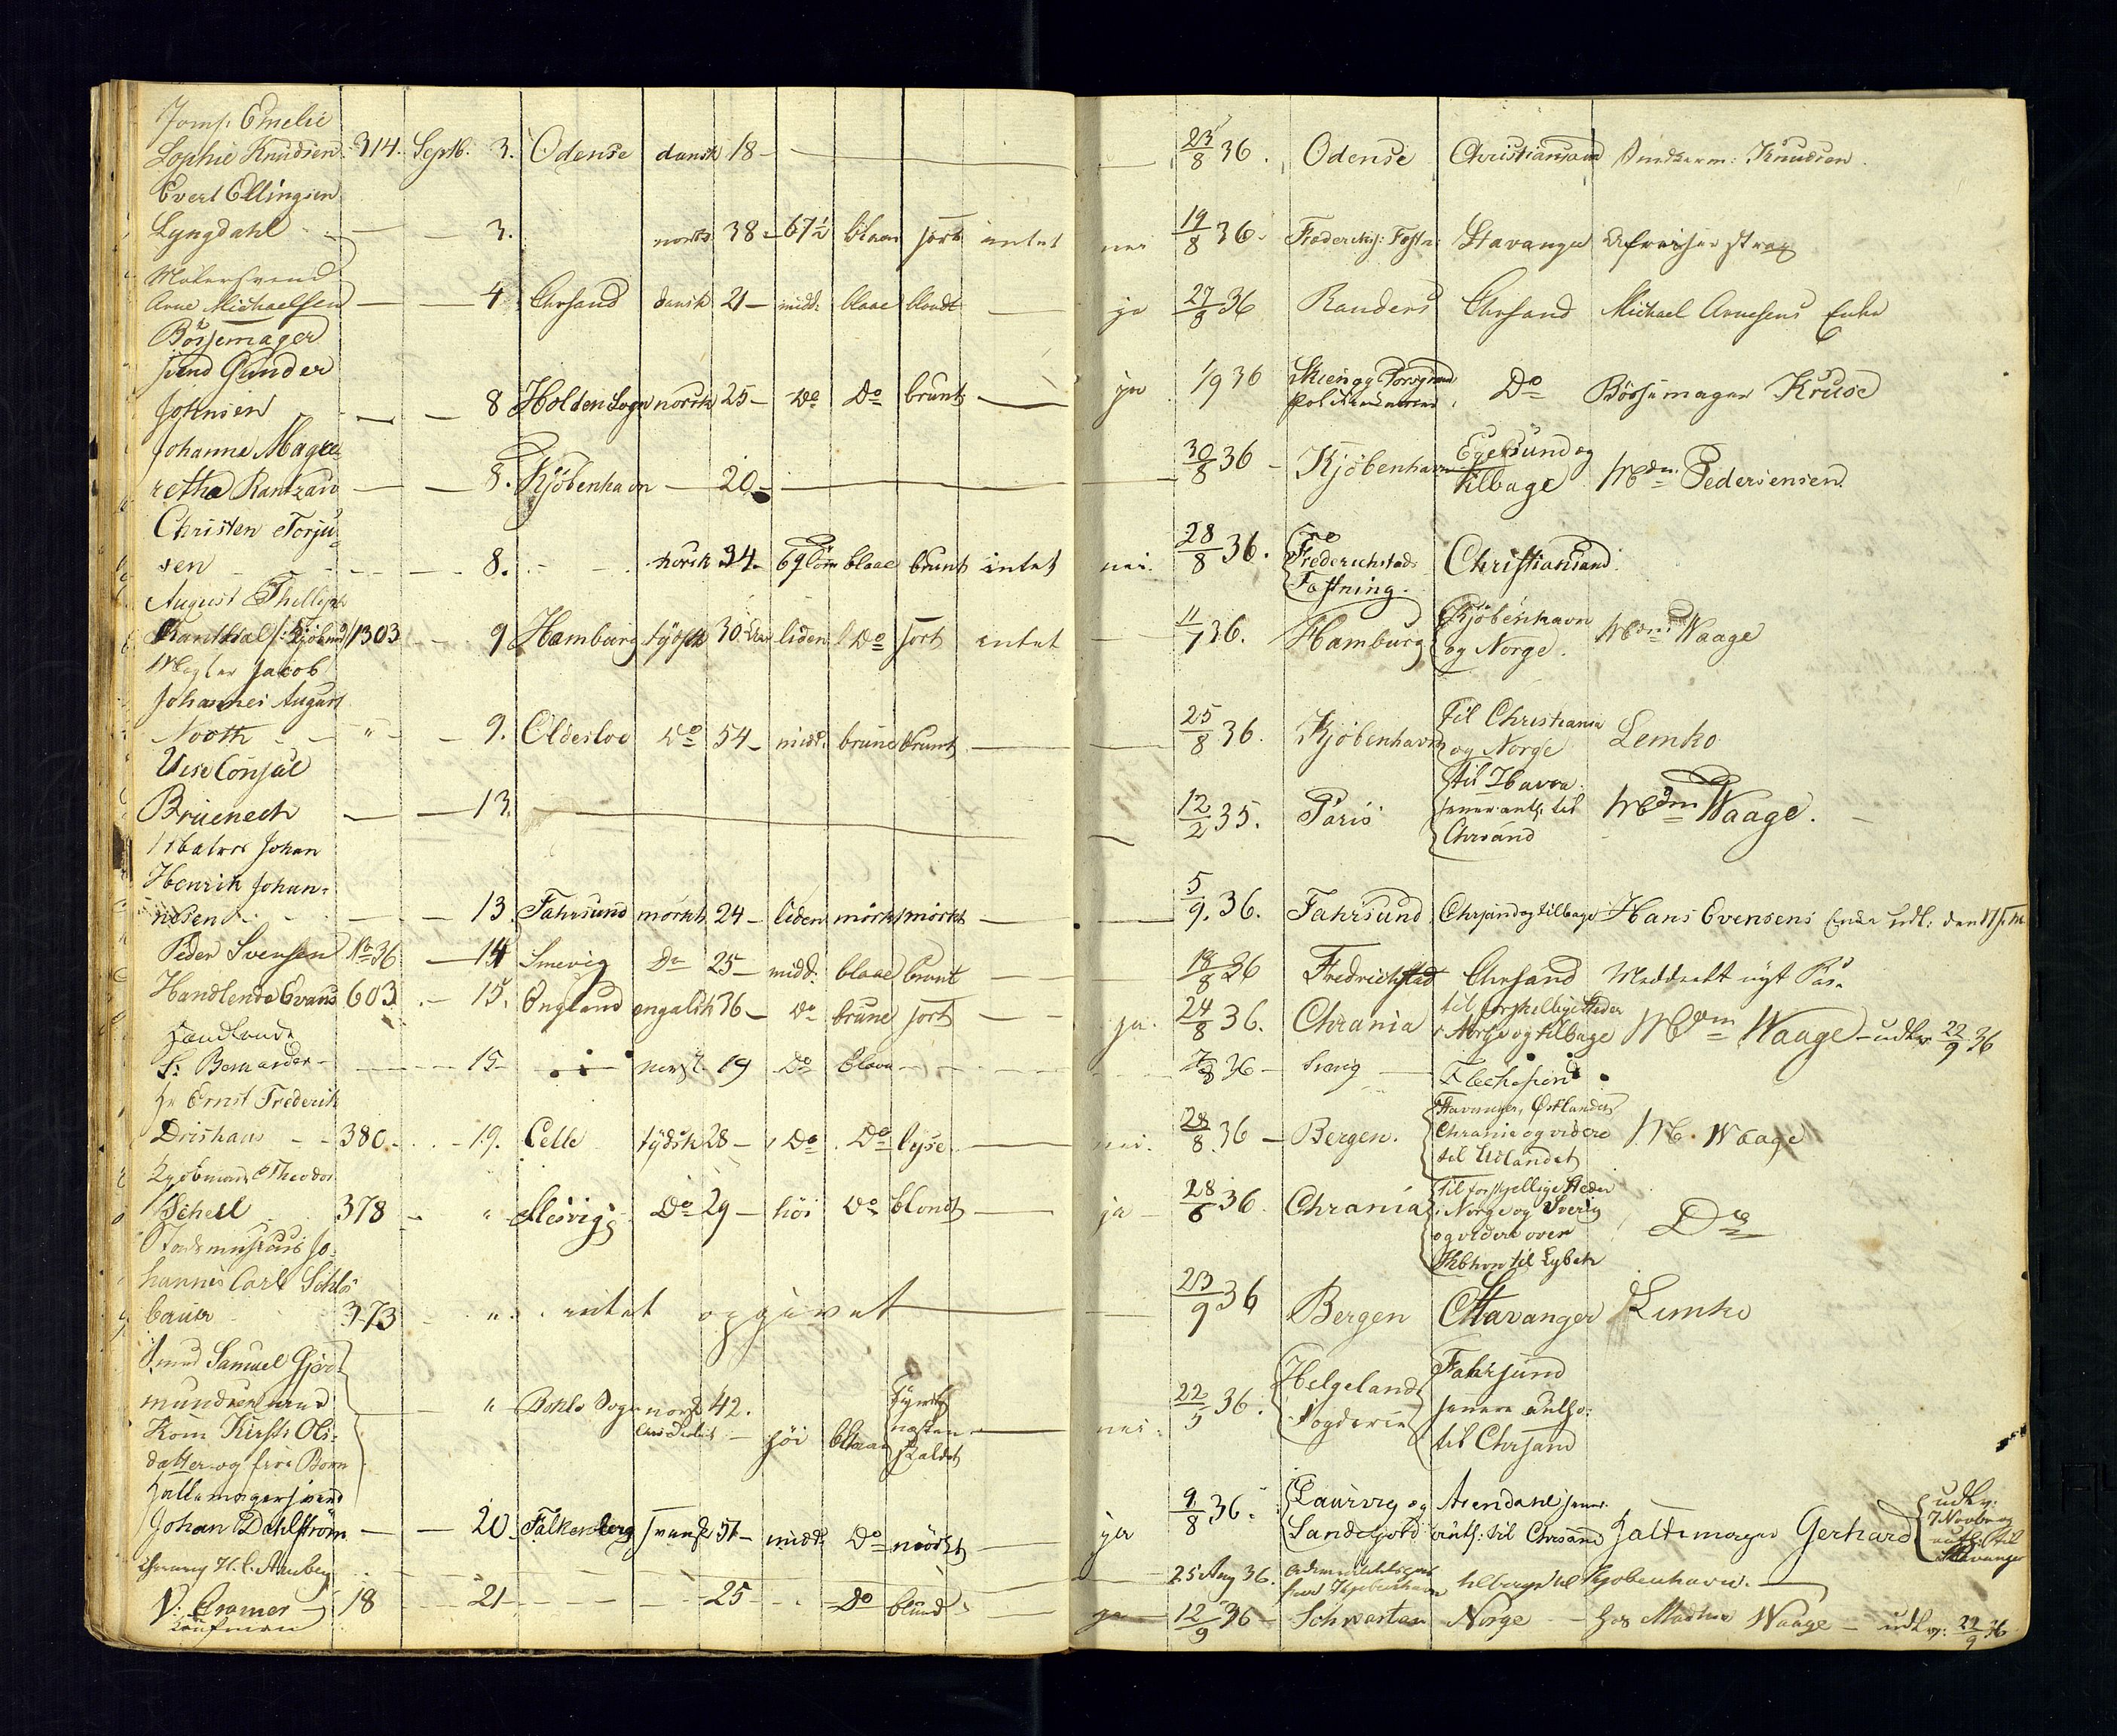 Jomf. Emelie
Sophie Knudsen 314. Septb. 3. Odense dansk 18 - 23/8 36. Odense Christiansand Knudsen.
Evert Ellingsen
Lyngdahl - - 3. norsk 38 - 67½ blaae sort intet nei 19/8 36. Stavanger
Malersvend
Arne Michaelsen - - 4. Chrsand dansk 21 - midd: blaae blondt - ja 27/8 36 Randers Chrsand Michael Arnesens Enke
Bössemager
svend Gunder
Johnsen - - 8 Holden Sogn norsk 25 - Do Do brunt - ja 1/9 36 Skien og Porsgrund Do Bössemager Kruse
Johanne Magre-
retha Rantzau - - 8. Kjöbenhavn - 20 - 30/8 36 - Kjöbenhavn Egersund og tilbage Mdm Pedersensen.
Christen Torju-
sen - - 8. norsk 34 - blaae brunt intet nei. 28/8 36. Frederichstads Fæstning. Christiansand.
August
1303 - 9 Hamburg tydsk 30 liden Do sort intet - 11/7 36. Hamburg Kjöbenhavn og Norge. Mdm Waage
Mægler Jacob
Johannes August
Nooth - " - 9. Oldesloe Do 54 - midd. brune brunt - 25/8 36. Kjöbenhavn til Christiania og Norge Lemko
Vise Consul
Bruenech - - 13. - 12/2 35. Paris til Havra senere antg. til Chrsand Mdm Waage.
Matros Johan
Henrik Johan-
nesen - - 13. Fahrsund mørkt 24 - liden mörkt mörkt - 5/9. 36. Fahrsund Chrsand og tilbage Hans Evensens Enke udl: den 17
Peder Svensen No 36 - 14 Smevig Do 25 - midd. blaae brunt - 18/8 36 Fredrichstad Chrsand Meddeelt nyt Pas.
Handlende Evans 603 - 15. England engelsk 36 - Do brune sort - ja. 24/8 36. Chrania til forskellige Steder i Norge og tilbage Mdm Waage - udlev 22/9 36
Handlende
S: Bernarder - - - 15 - norsk 19 Do blaae - /8 36 -
Hr Ernst Frederik
Drishaus - - 380 - - 19. Celle tydsk 28 - Do Do lyse - nei. 28/8. 36 - Bergen. Stavanger, Østlandet, Chrania og videre til Udlandet M. Waage
Kjöbmand Theodor
Schell 378 - " Slesvig Do 29 - höi Do blondt - ja - 28/6 36. Chrania til forskjellige Steder i Norge og Sverig og videre over Kbhvn til Lybek Do
Stads musicus Jo-
hannes Carl Schlö-
bauer 373 - " intet opgivet - 23/9 36 Bergen Stavanger Lemko
Smed Samuel Gjör-
mundsen
Kone Kirsti Ols-
datter og fire Börn - " norsk 42. höi blaae næsten skaldet - nei. 22/5 36. Helgelands Fogderie Fahrsund senere til Chrsand
Hattemagersvend
Johan Dahlström - - 20 - Falkenberg svensk 51 - midd: Do mörkt - ja 9/8 36. Laurvig og Sandefjord Arendahl senere antg: til Chrsand Hattemager Gerhard udlev: 7 Novbr og til Stavanger
H. C. - 25 Aug 36. fra Kjøbenhavn tilbage til Kjobenhavn.
V: Cramer 18 - 21 - - - 25 - Do blond - ja - 12/9 36 - Schwartau Norge - hos Madme Waage - udlev: 22/9 36
Kaufmann